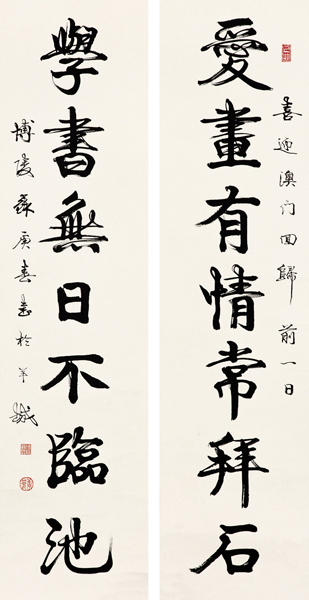 喜迎澳门回歸前一日
愛畫有情常拜石
學書無日不臨池
博陵蘇庚春書於羊城